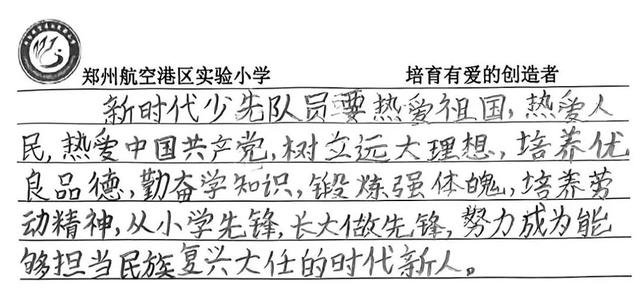 郑州航空港区实验小学 培育有爱的创造者
新时代少先队员要热爱祖国,热爱人
民,热爱中国共产党,树立远大理想,培养优
良品德,勤奋学知识,锻炼强体魄,培养劳
动精神,从小学先锋,长大做先锋,努力成为能
够担当民族复兴大任的时代新人。